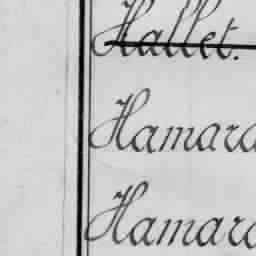 Hallet.
Hamard
Hamard